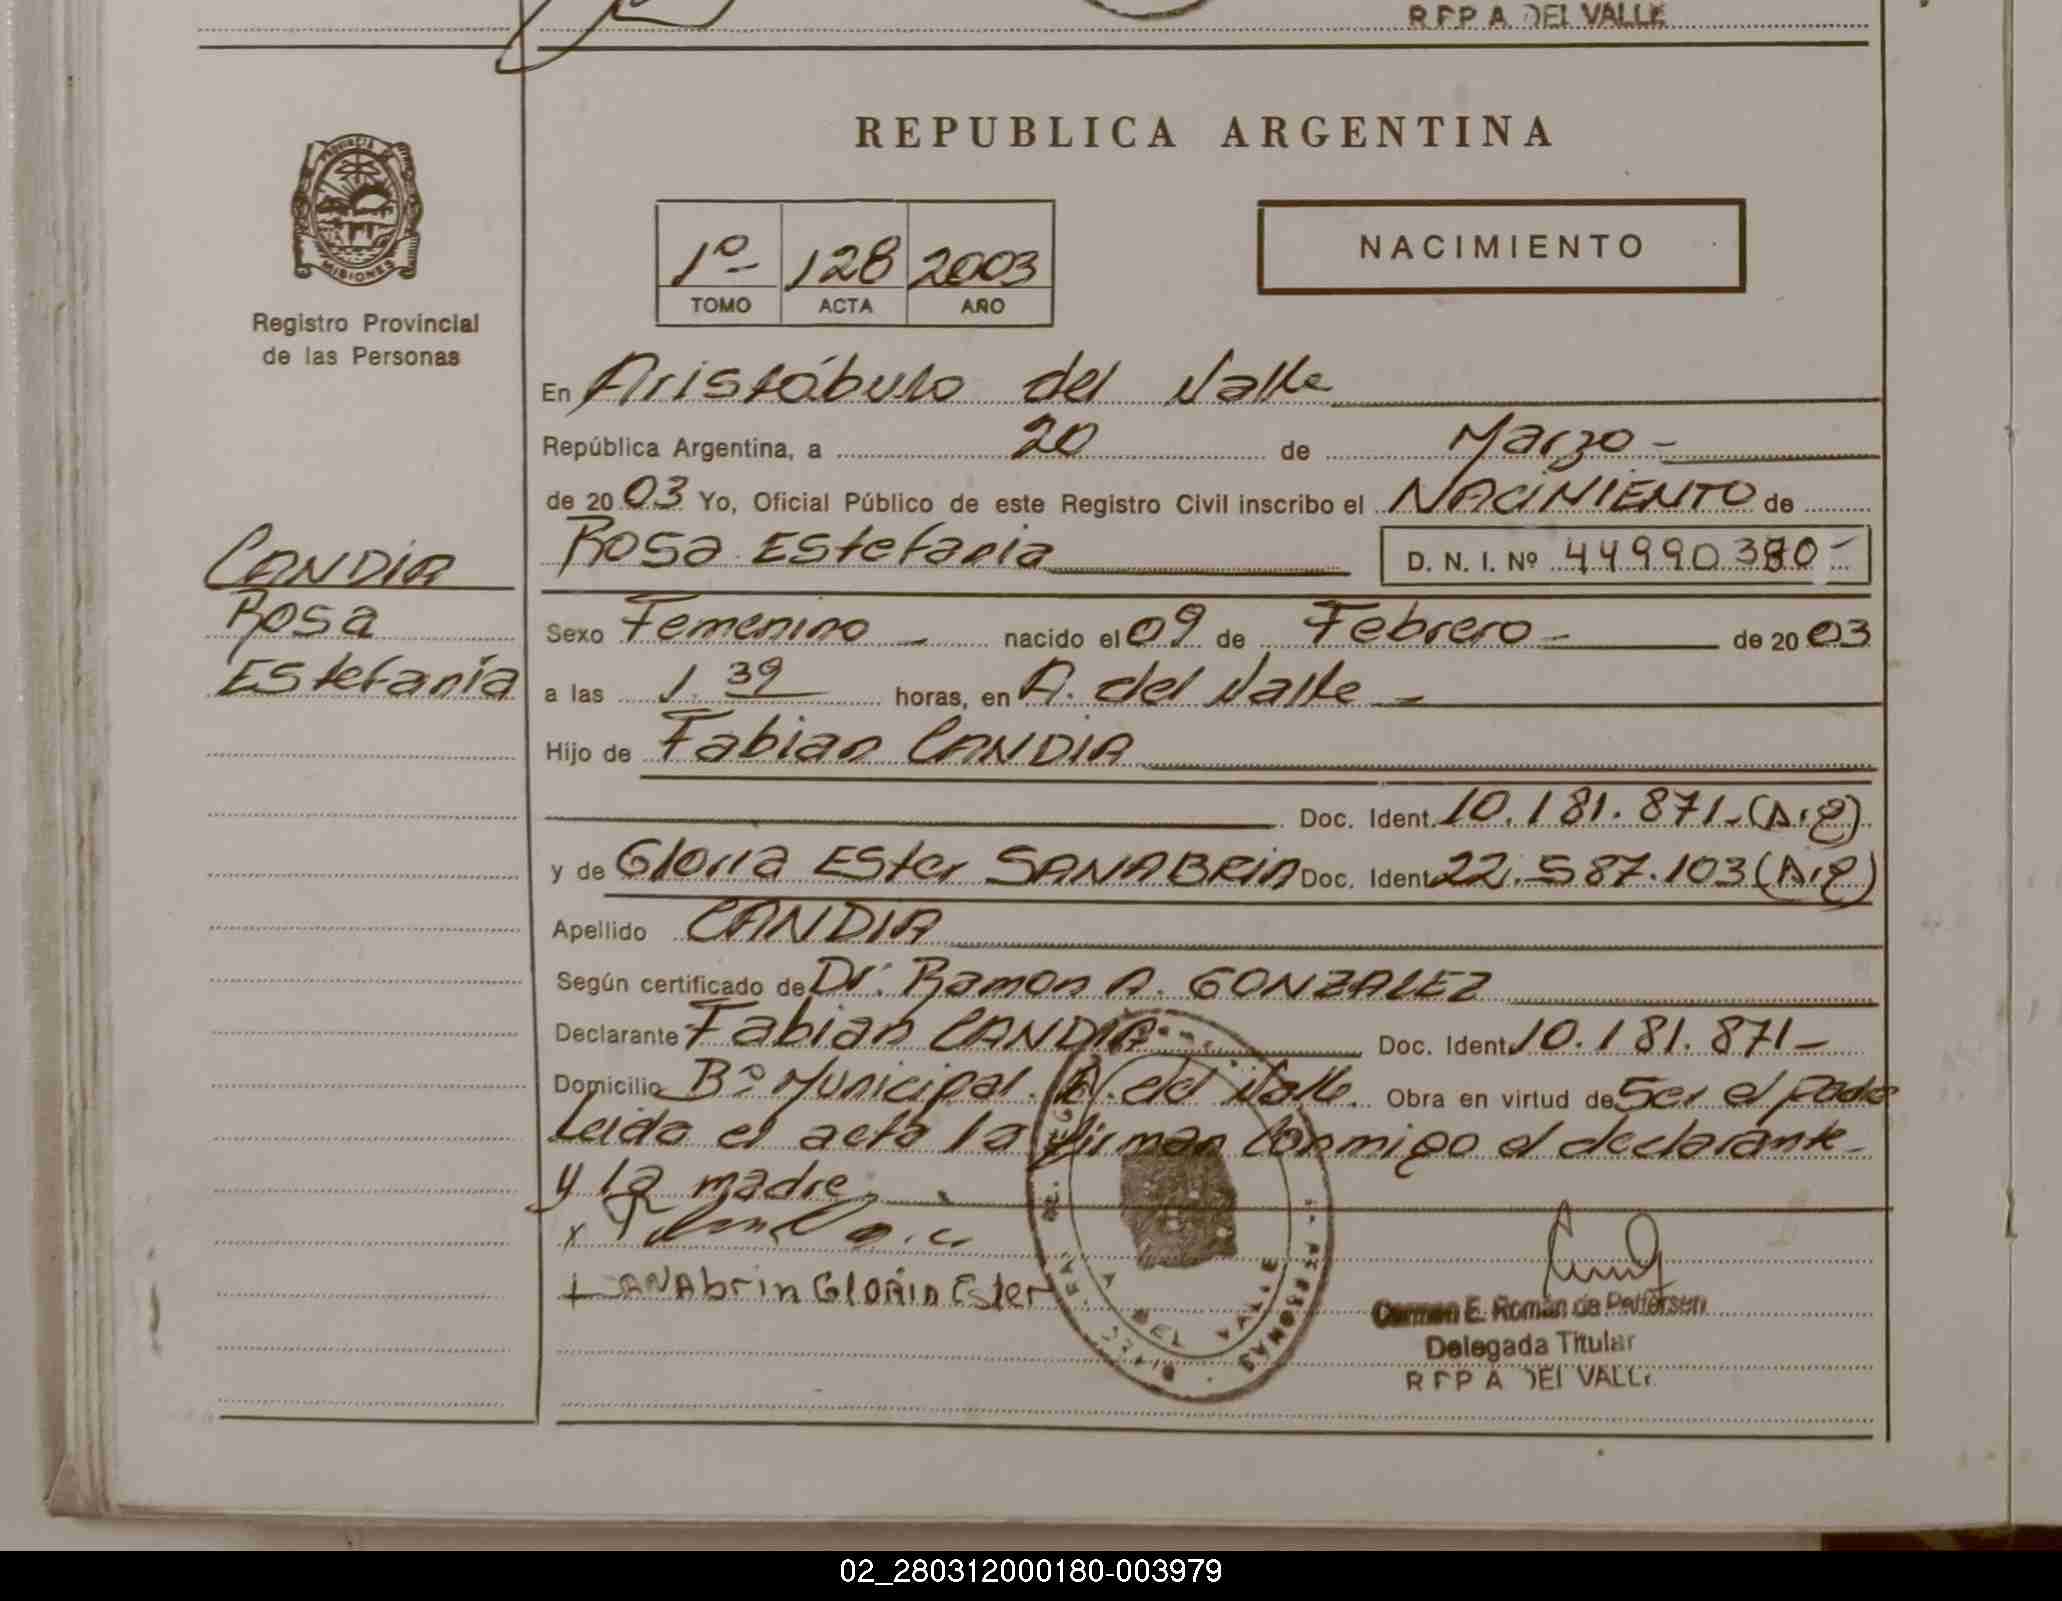 R.F.P. A. DEL VALLE
REPUBLICA ARGENTINA
PROVINCIA DE
MISIONES
1º- 128 2003
TOMO ACTA AÑO
NACIMIENTO
Registro Provincial
de las Personas
En Aristóbulo del Valle
República Argentina, a 20 de Marzo -
de 20 03 Yo, Oficial Público de este Registro Civil inscribo el NACIMIENTO de
Rosa Estefania D. N. I. Nº 44990380-
CANDIA
Rosa
Estefanía
Sexo Femenino - nacido el 09 de Febrero - de 20 03
a las 1. 39 horas, en A. del Valle -
Hijo de Fabian CANDIA
Doc. Ident. 10.181.871-(Arg)
y de Gloria Ester SANABRIA Doc. Ident. 22.587.103 (Arg)
Apellido CANDIA
Según certificado de Dr. Ramon A. GONZALEZ
Declarante Fabian CANDIA Doc. Ident. 10.181.871-
Domicilio Bº Municipal. A. del Valle. Obra en virtud de Ser el padre
Leida el acta la firman conmigo el declarante
y la madre.
x
+ SANAbriA GLORIA Ester
Carmen E. Román de Pettersen
Delegada Titular
R.F.P. A. DEL VALLE
02_280312000180-003979